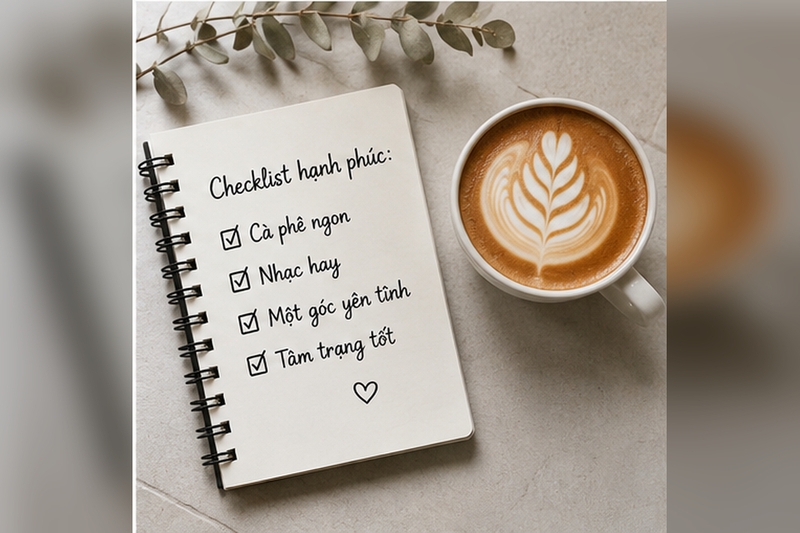 Checklist hạnh phúc:
Cà phê ngon
Nhạc hay
Một góc yên tĩnh
Tâm trạng tốt